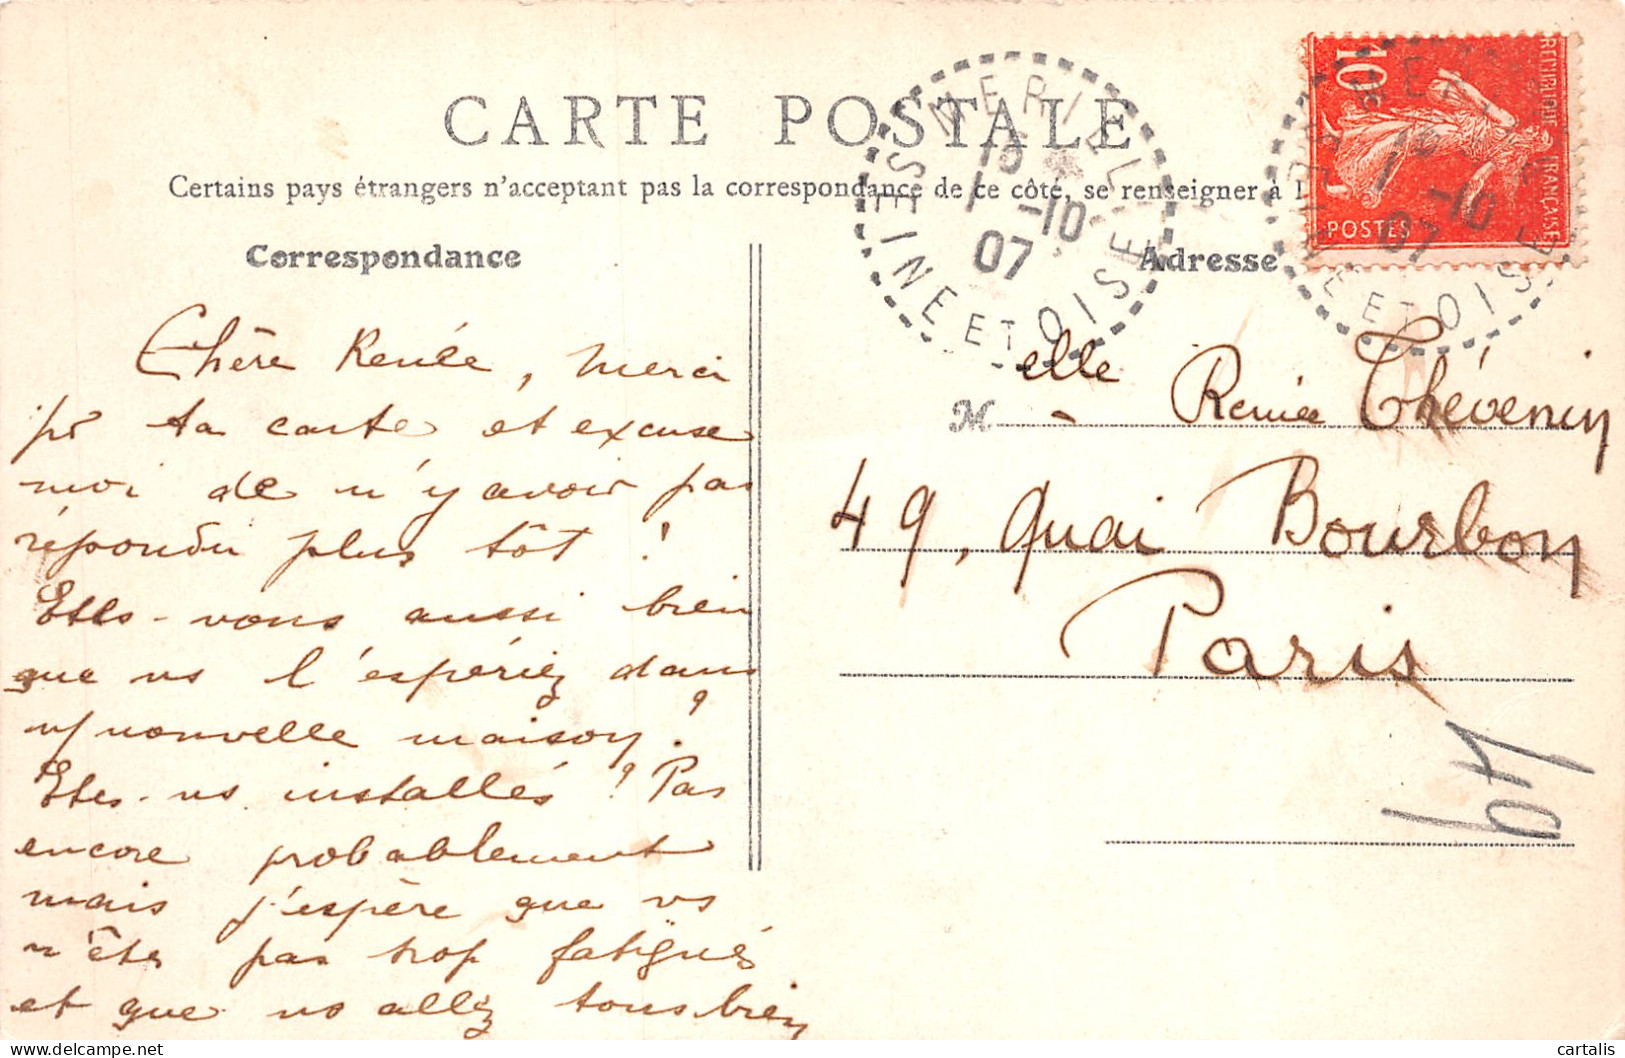 CARTE POSTALE
Certains pays étrangers n'acceptent pas la correspondance de ce côté, se renseigner à l
Correspondance
Chère Renée, merci
pr ta carte et excuse
moi de n'y avoir pas
répondu plus tôt !
Etes-vous aussi bien
que vs l'espériez dans
vf nouvelle maison ?
Etes-vs installés ? Pas
encore probablement
mais j'espère que vs
n'êtes pas trop fatigués
et que vs allez tous bien
MERIEL
16
1 -10
07
SEINE ET OISE
10c
REPUBLIQUE FRANÇAISE
POSTES
MERIEL
16
1 -10
07
SEINE ET OISE
Adresse
Melle Renée Thévenin
49, Quai Bourbon
Paris
67
cartalis